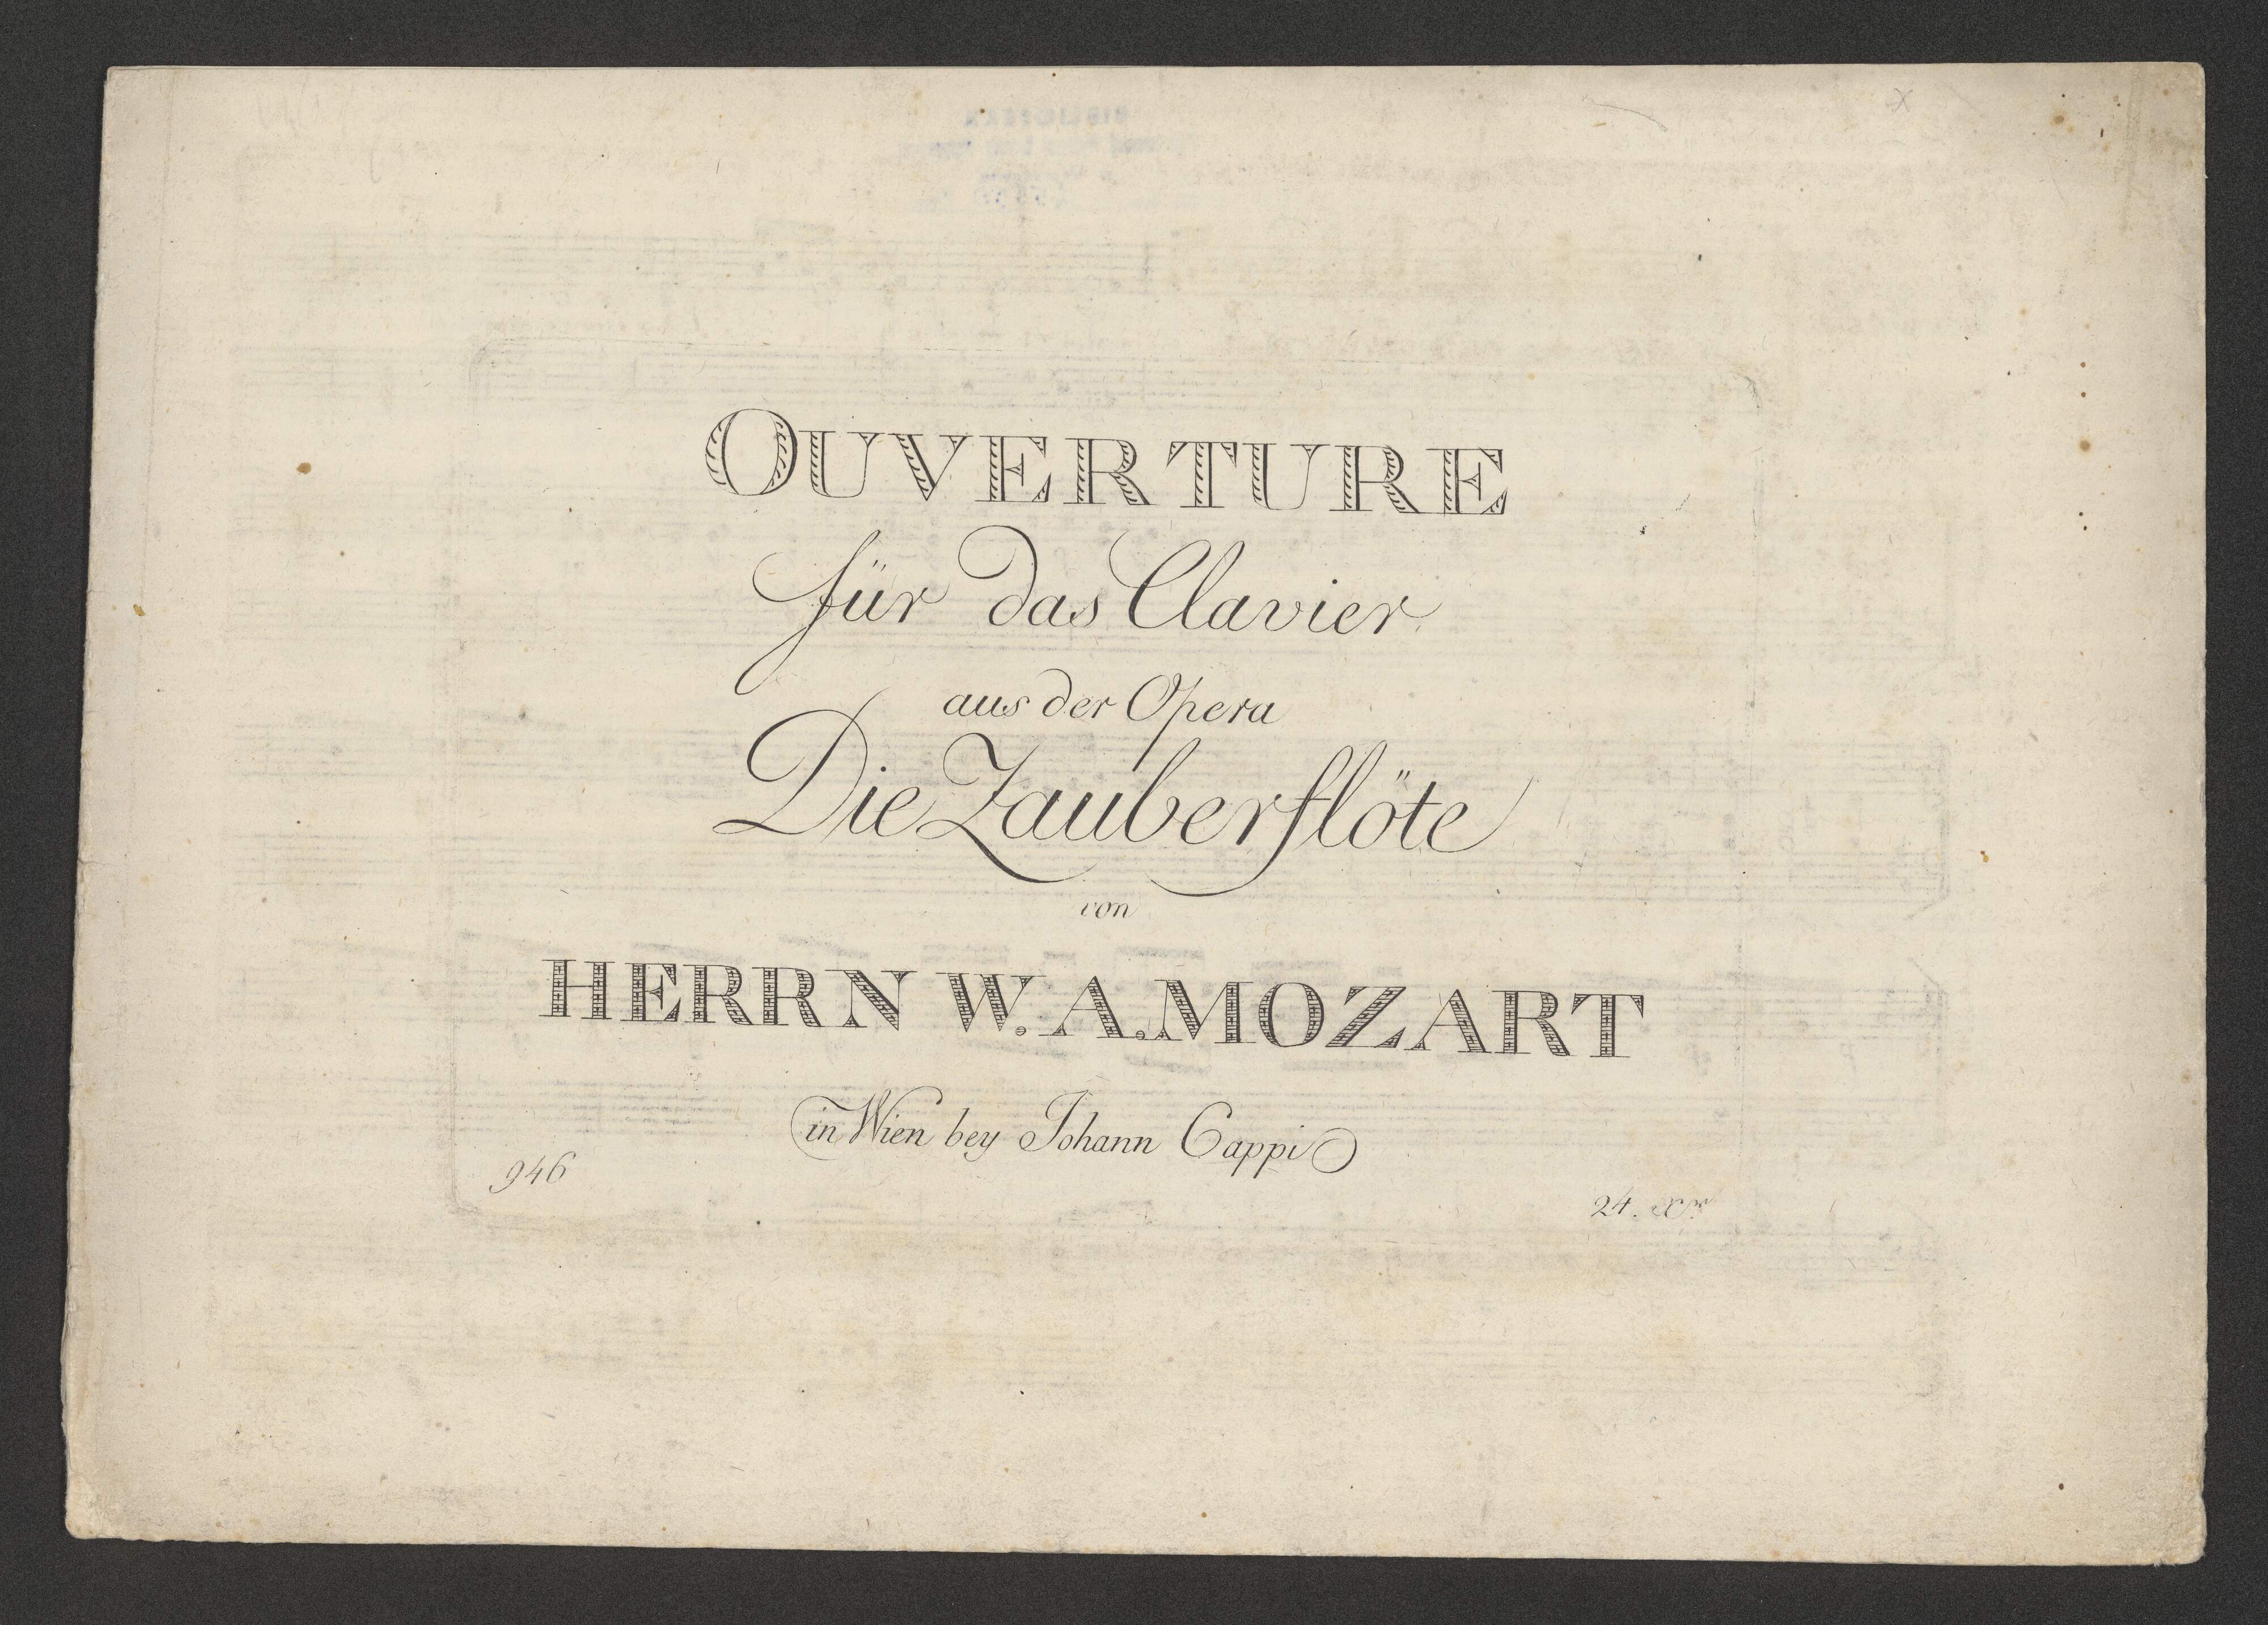 OUVERTURE
für das Clavier
aus der Opera
Die Zauberflöte
von
HERRN W. A. MOZART
in Wien bey Johann Cappi
946
24. xr